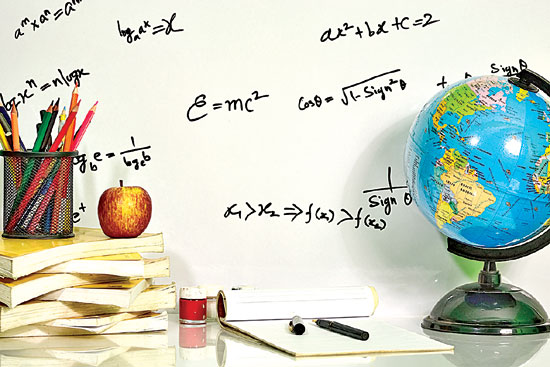 a^m × a^n = a^m
log_a a^x = x
ax² + bx + c = 2
log x^n = n log x
E = mc²
cos θ = √1 - Sign² θ
Sign θ
log_b e = 1/log_e b
1/Sign θ
x₁ > x₂ ⇒ f(x₁) > f(x₂)